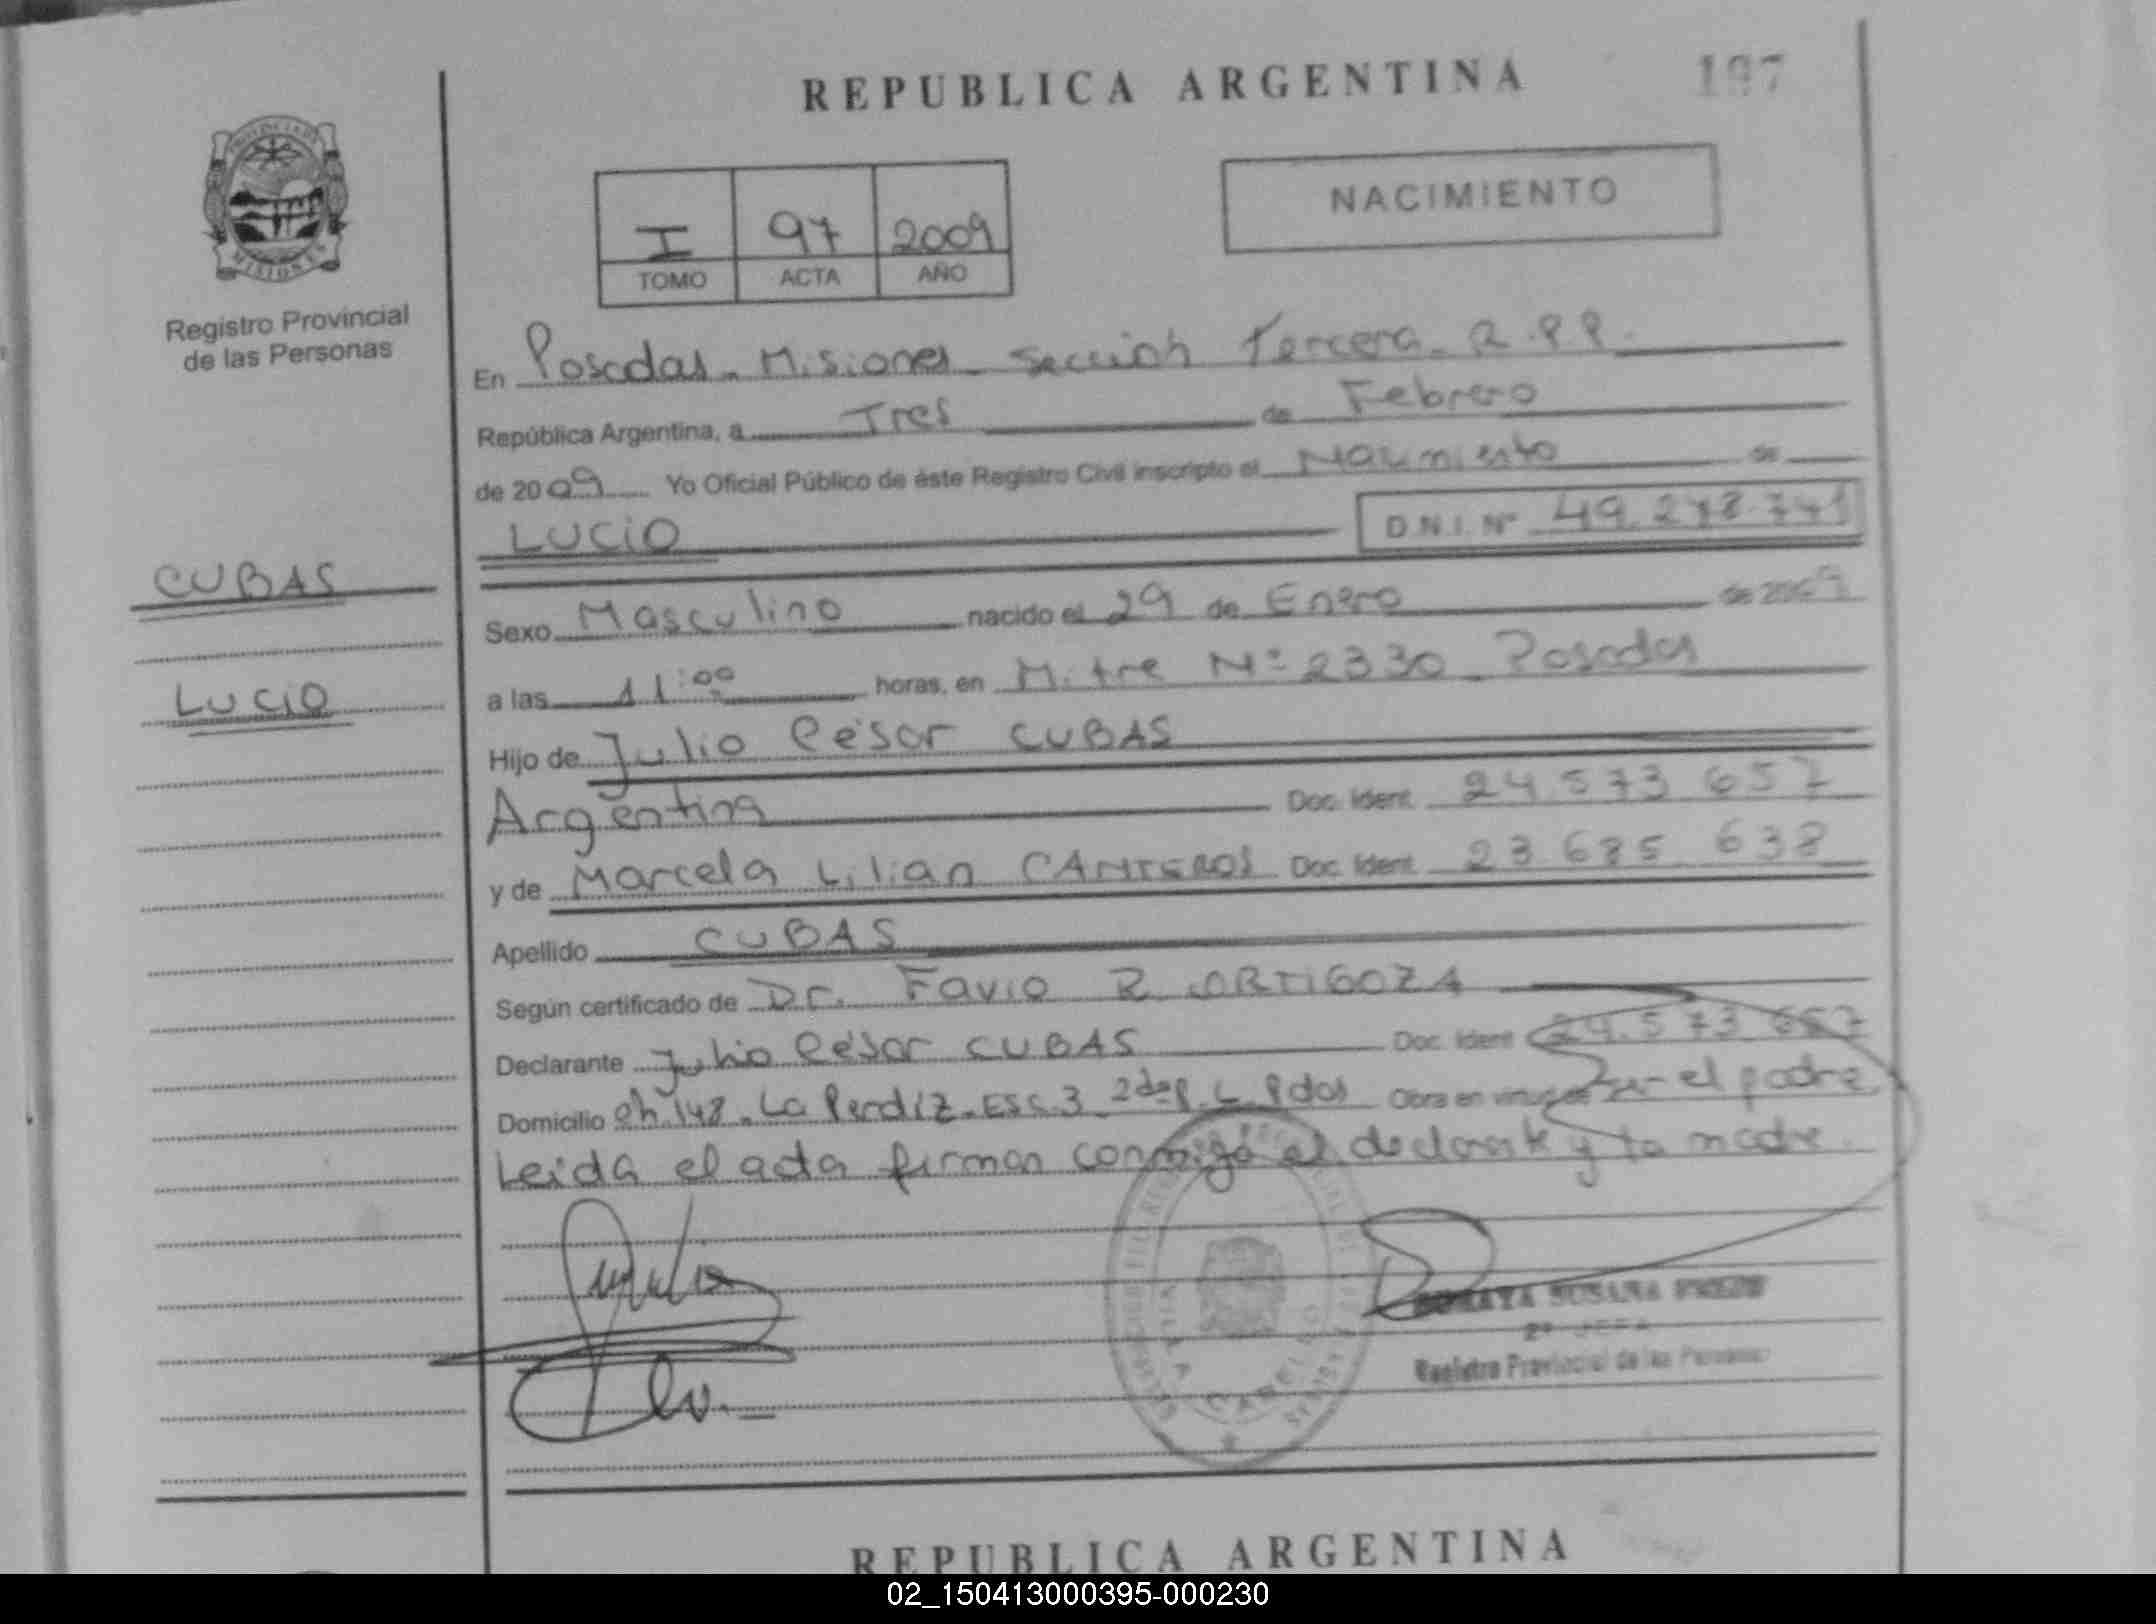 REPUBLICA ARGENTINA
197
MISIONES
Registro Provincial
de las Personas
NACIMIENTO
I 97 2009
TOMO ACTA AÑO
En Posadas - Misiones - Sección Tercera - R.P.P.
República Argentina, a Tres de Febrero
de 2009 Yo Oficial Público de éste Registro Civil inscripto el Nacimiento de
LUCIO D.N.I. Nº 49.278.741
CUBAS
LUCIO
Sexo Masculino nacido el 29 de Enero de 2009
a las 11:00 horas, en Mitre Nº 2330 - Posadas
Hijo de Julio César CUBAS
Argentina Doc. Ident. 24.573.657
y de Marcela Lilian CANTEROS Doc. Ident. 23.685.638
Apellido CUBAS
Según certificado de Dr. Favio R. ORTIGOZA
Declarante Julio César CUBAS Doc. Ident. 24.573.657
Domicilio Ch. 148 - La Perdiz - Esc. 3 - Pdas Obra en virtud de el padre
Leida el acta firman conmigo el declarante y la madre.
SUSANA
2º JEFA
Registro Provincial de las Personas
REPUBLICA ARGENTINA
02_150413000395-000230